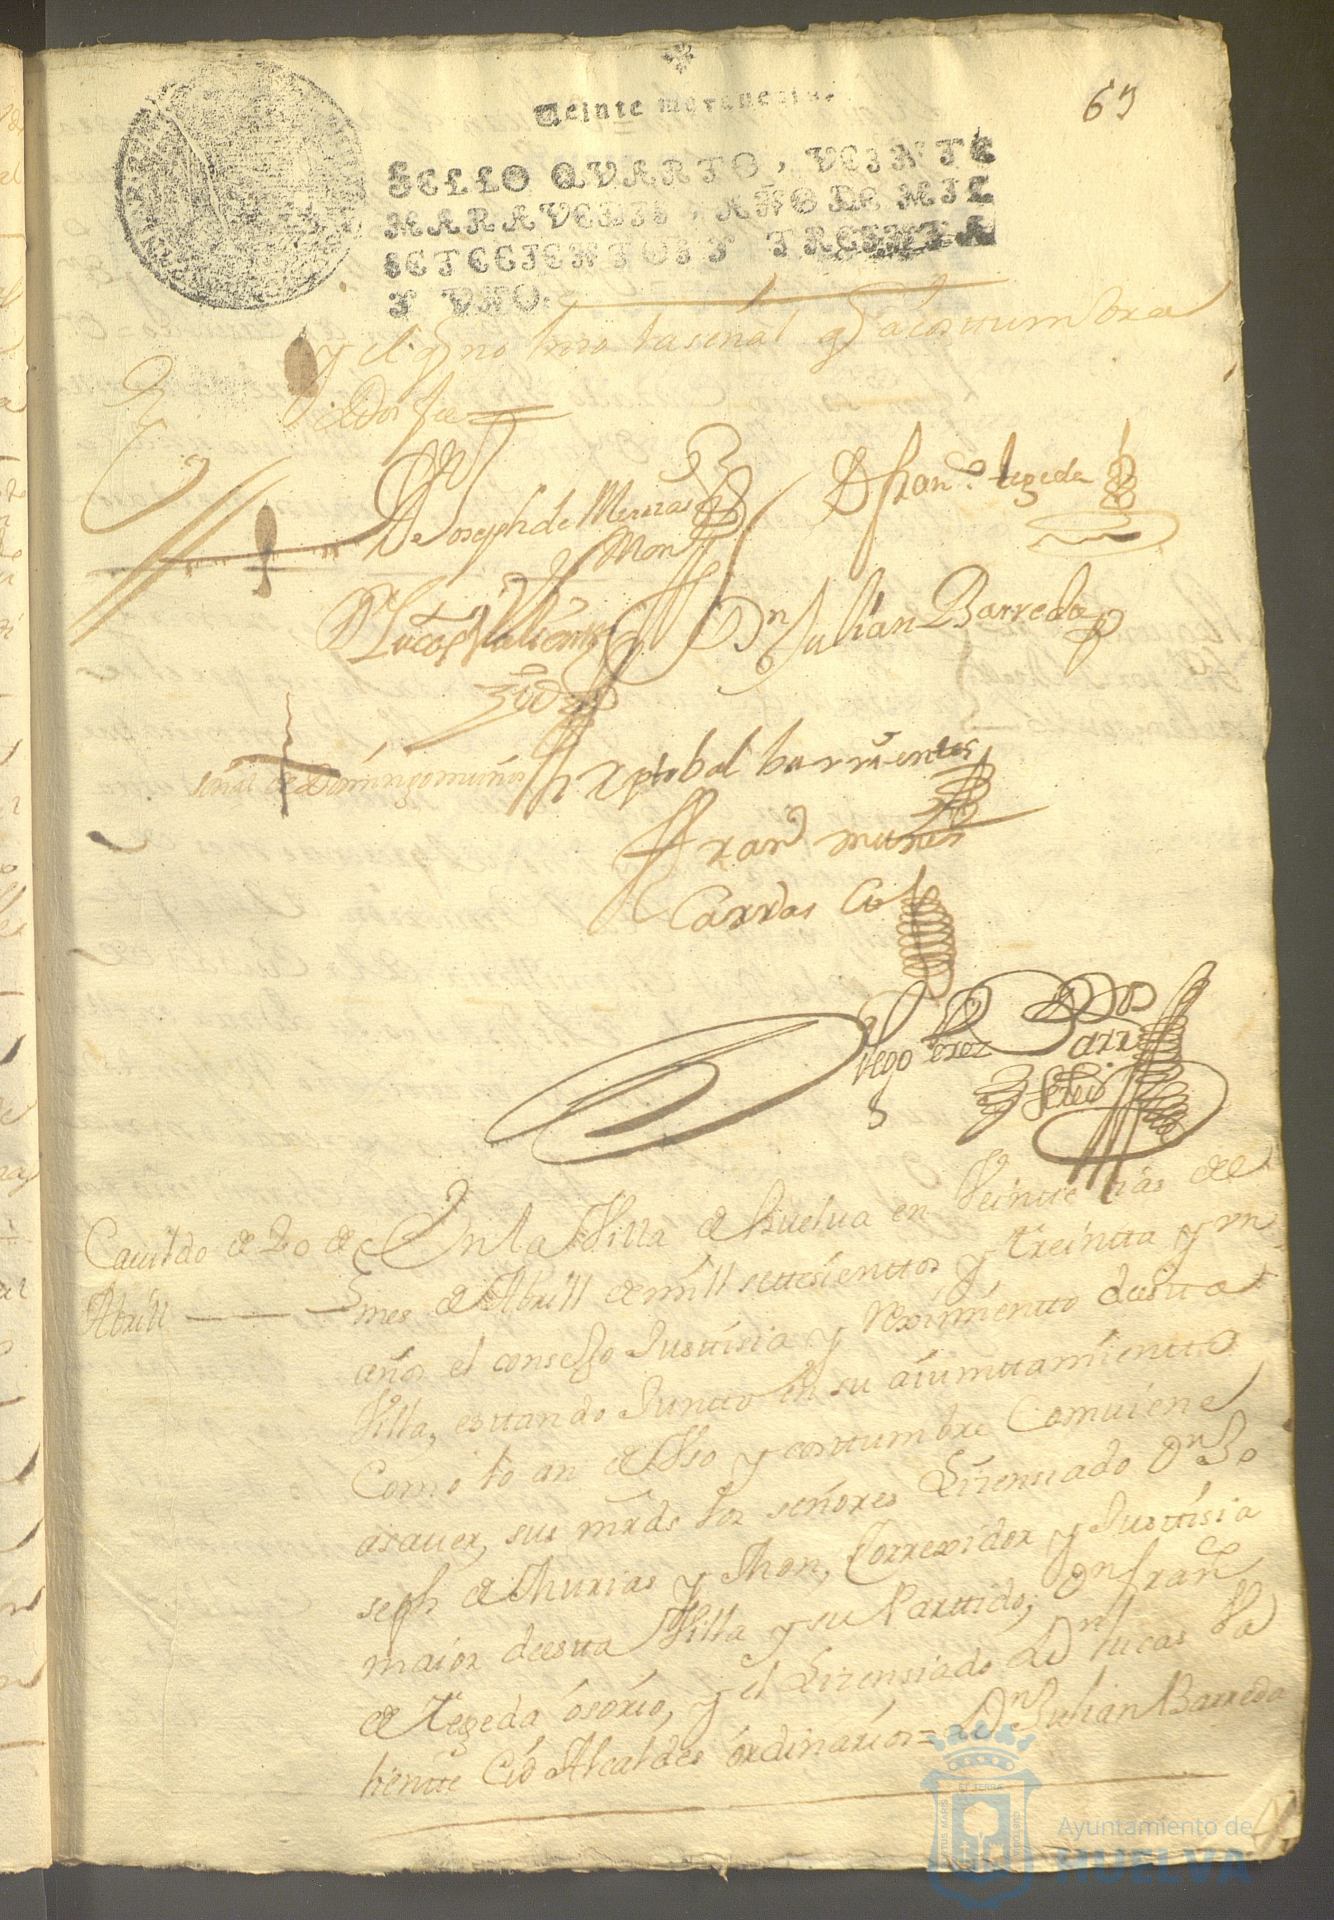 65
Veinte maravedis.
SELLO QVARTO, VEINTE
MARAVEDIS, AÑO DE MIL
SETECIENTOS Y TREINTA
Y VNO.
y el qe no hizo la señal qe acostumbra
de Dos fee
Dn Joseph de Murias
y Mon
Dn Franco. tegeda
Dn Lucas Valiente
Zid
Dn Julian Barreda
señal de Domingo muños
Xptobal barrientos
Fran muñoz
Carrasco
Diego Perez Barr
s
Cauildo de 20 de
Abrill
En la Villa de Huelua en Veinte dias de
mes de Abrill de mill settesienttos y treintta y un
años el consejo Justtisia y reximientto de estta
Villa, esttando Juntto en su aiunttamientto
Como lo an de Vso y costtumbre Comuiene
asauer, sus mrds los señores Lizensiado Dn Jo
seph de Murias y Mon, Correxidor y Justtisia
maior de estta Villa y su Parttido; Dn Franco
de Tegeda osorio, y el Lizensiado Dn lucas Va
lientte Cid Alcaldes ordinarios= Dn Julian Barreda
Ayuntamiento de
HUELVA